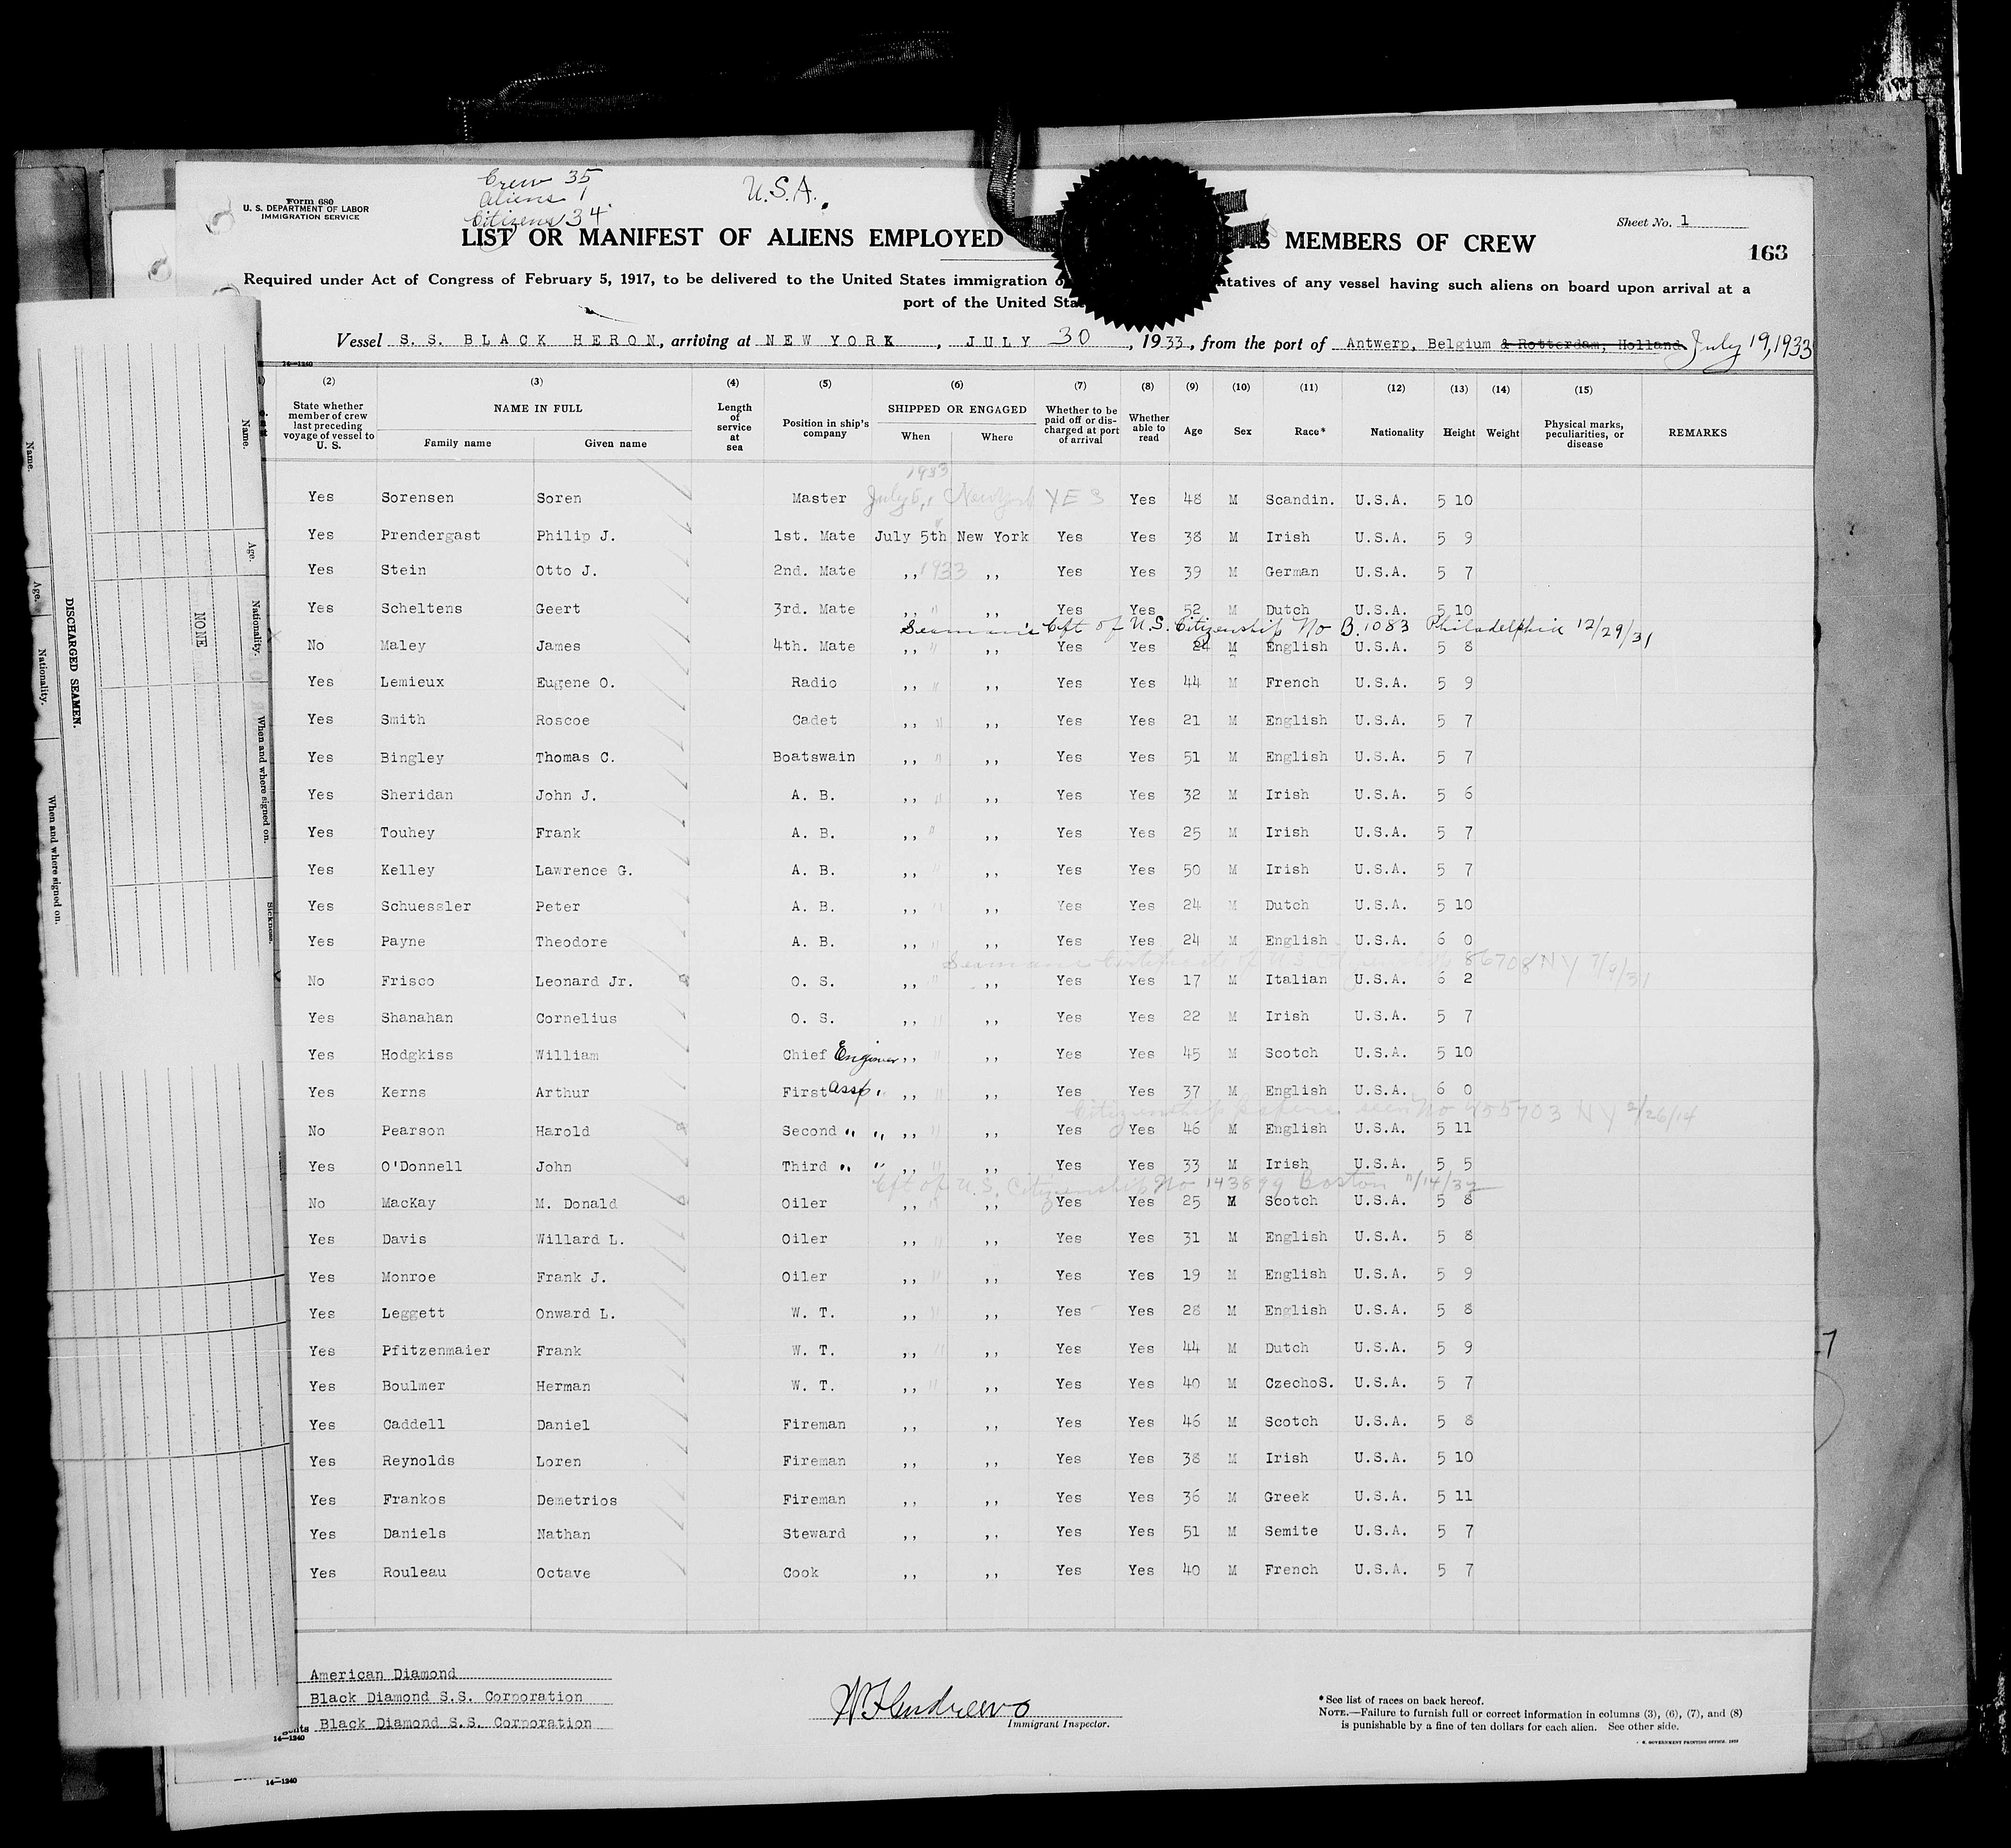 Crew 35
Aliens 1
Citizens 34
U.S.A.
Form 680
U. S. DEPARTMENT OF LABOR
IMMIGRATION SERVICE
Sheet No. 1
LIST OR MANIFEST OF ALIENS EMPLOYED AS MEMBERS OF CREW
163
Required under Act of Congress of February 5, 1917, to be delivered to the United States immigration of any vessel having such aliens on board upon arrival at a
port of the United
Vessel S. S. BLACK HERON, arriving at NEW YORK, JULY 30, 1933, from the port of Antwerp, Belgium & Rotterdam, Holland July 19, 1933
14—1240
(2) (3) (4) (5) (6) (7) (8) (9) (10) (11) (12) (13) (14) (15)
State whether member of crew last preceding voyage of vessel to U. S. NAME IN FULL Family name Given name Length of service at sea Position in ship's company SHIPPED OR ENGAGED When Where Whether to be paid off or discharged at port of arrival Whether able to read Age Sex Race* Nationality Height Weight Physical marks, peculiarities, or disease REMARKS
1933
Yes Sorensen Soren Master July 5, New York YES Yes 48 M Scandin. U.S.A. 5 10
Yes Prendergast Philip J. 1st. Mate July 5th New York Yes Yes 38 M Irish U.S.A. 5 9
Yes Stein Otto J. 2nd. Mate ,, 1933 ,, Yes Yes 39 M German U.S.A. 5 7
Yes Scheltens Geert 3rd. Mate ,, " ,, Yes Yes 52 M Dutch U.S.A. 5 10
Seaman's Cft of U.S. Citizenship No B.1083 Philadelphia 12/29/31
No Maley James 4th. Mate ,, " ,, Yes Yes 24 M English U.S.A. 5 8
Yes Lemieux Eugene O. Radio ,, " ,, Yes Yes 44 M French U.S.A. 5 9
Yes Smith Roscoe Cadet ,, " ,, Yes Yes 21 M English U.S.A. 5 7
Yes Bingley Thomas C. Boatswain ,, " ,, Yes Yes 51 M English U.S.A. 5 7
Yes Sheridan John J. A. B. ,, " ,, Yes Yes 32 M Irish U.S.A. 5 6
Yes Touhey Frank A. B. ,, " ,, Yes Yes 25 M Irish U.S.A. 5 7
Yes Kelley Lawrence G. A. B. ,, " ,, Yes Yes 50 M Irish U.S.A. 5 7
Yes Schuessler Peter A. B. ,, " ,, Yes Yes 24 M Dutch U.S.A. 5 10
Yes Payne Theodore A. B. ,, " ,, Yes Yes 24 M English U.S.A. 6 0
Seamans Certificate of U.S. Citizenship 86708 NY
No Frisco Leonard Jr. O. S. ,, " ,, Yes Yes 17 M Italian U.S.A. 6 2
Yes Shanahan Cornelius O. S. ,, " ,, Yes Yes 22 M Irish U.S.A. 5 7
Yes Hodgkiss William Chief Engineer ,, " ,, Yes Yes 45 M Scotch U.S.A. 5 10
Yes Kerns Arthur First Asst " ,, " ,, Yes Yes 37 M English U.S.A. 6 0
Citizenship papers seen No NY 2/26/14
No Pearson Harold Second " " ,, " ,, Yes Yes 46 M English U.S.A. 5 11
Yes O'Donnell John Third " " ,, " ,, Yes Yes 33 M Irish U.S.A. 5 5
Cft of U.S. Citizenship No 143899 Boston 11/14/32
No MacKay M. Donald Oiler ,, " ,, Yes Yes 25 M Scotch U.S.A. 5 8
Yes Davis Willard L. Oiler ,, " ,, Yes Yes 31 M English U.S.A. 5 8
Yes Monroe Frank J. Oiler ,, " ,, Yes Yes 19 M English U.S.A. 5 9
Yes Leggett Onward L. W. T. ,, " ,, Yes Yes 28 M English U.S.A. 5 8
Yes Pfitzenmaier Frank W. T. ,, " ,, Yes Yes 44 M Dutch U.S.A. 5 9
Yes Boulmer Herman W. T. ,, " ,, Yes Yes 40 M CzechoS. U.S.A. 5 7
Yes Caddell Daniel Fireman ,, ,, Yes Yes 46 M Scotch U.S.A. 5 8
Yes Reynolds Loren Fireman ,, ,, Yes Yes 38 M Irish U.S.A. 5 10
Yes Frankos Demetrios Fireman ,, ,, Yes Yes 36 M Greek U.S.A. 5 11
Yes Daniels Nathan Steward ,, ,, Yes Yes 51 M Semite U.S.A. 5 7
Yes Rouleau Octave Cook ,, ,, Yes Yes 40 M French U.S.A. 5 7
American Diamond
Black Diamond S.S. Corporation
Black Diamond S.S. Corporation
14—1240
14—1240
W F Andrews
Immigrant Inspector.
*See list of races on back hereof.
NOTE.—Failure to furnish full or correct information in columns (3), (6), (7), and (8)
is punishable by a fine of ten dollars for each alien. See other side.
GOVERNMENT PRINTING OFFICE
Name.
Age.
Nationality.
When and where signed on.
Sickness.
NONE
DISCHARGED SEAMEN.
Name.
Age.
Nationality.
When and where signed on.
7